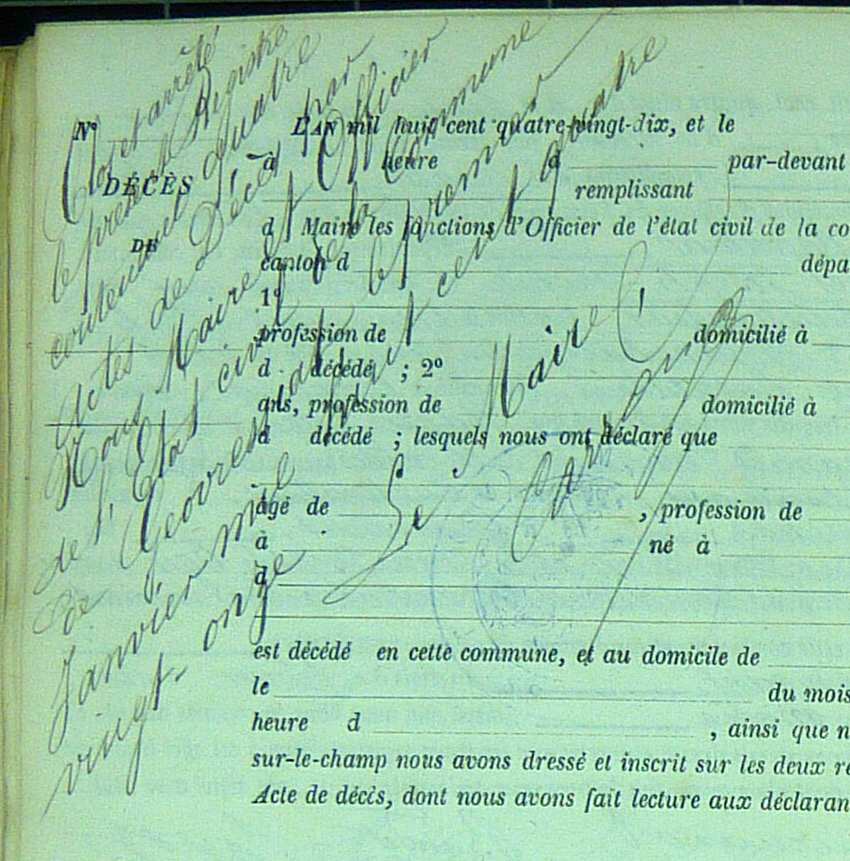 Clos et arrêté
le présent Registre
contenant quatre
Actes de Décès par
Nous Maire et Officier
de l'État civil de la Commune
de Geovresset le premier
Janvier mil huit cent quatre
vingt-onze
Le Maire
N°
DÉCÈS
DE
L'AN mil huit cent quatre-vingt-dix, et le
à heure d par-devant
remplissant
d Maire les fonctions d'Officier de l'état civil de la co
canton d dépa
1°
profession de domicilié à
d décédé ; 2°
ans, profession de domicilié à
d décédé ; lesquels nous ont déclaré que
âgé de , profession de
à né à
d
est décédé en cette commune, et au domicile de
le du mois
heure d , ainsi que n
sur-le-champ nous avons dressé et inscrit sur les deux re
Acte de décès, dont nous avons fait lecture aux déclaran